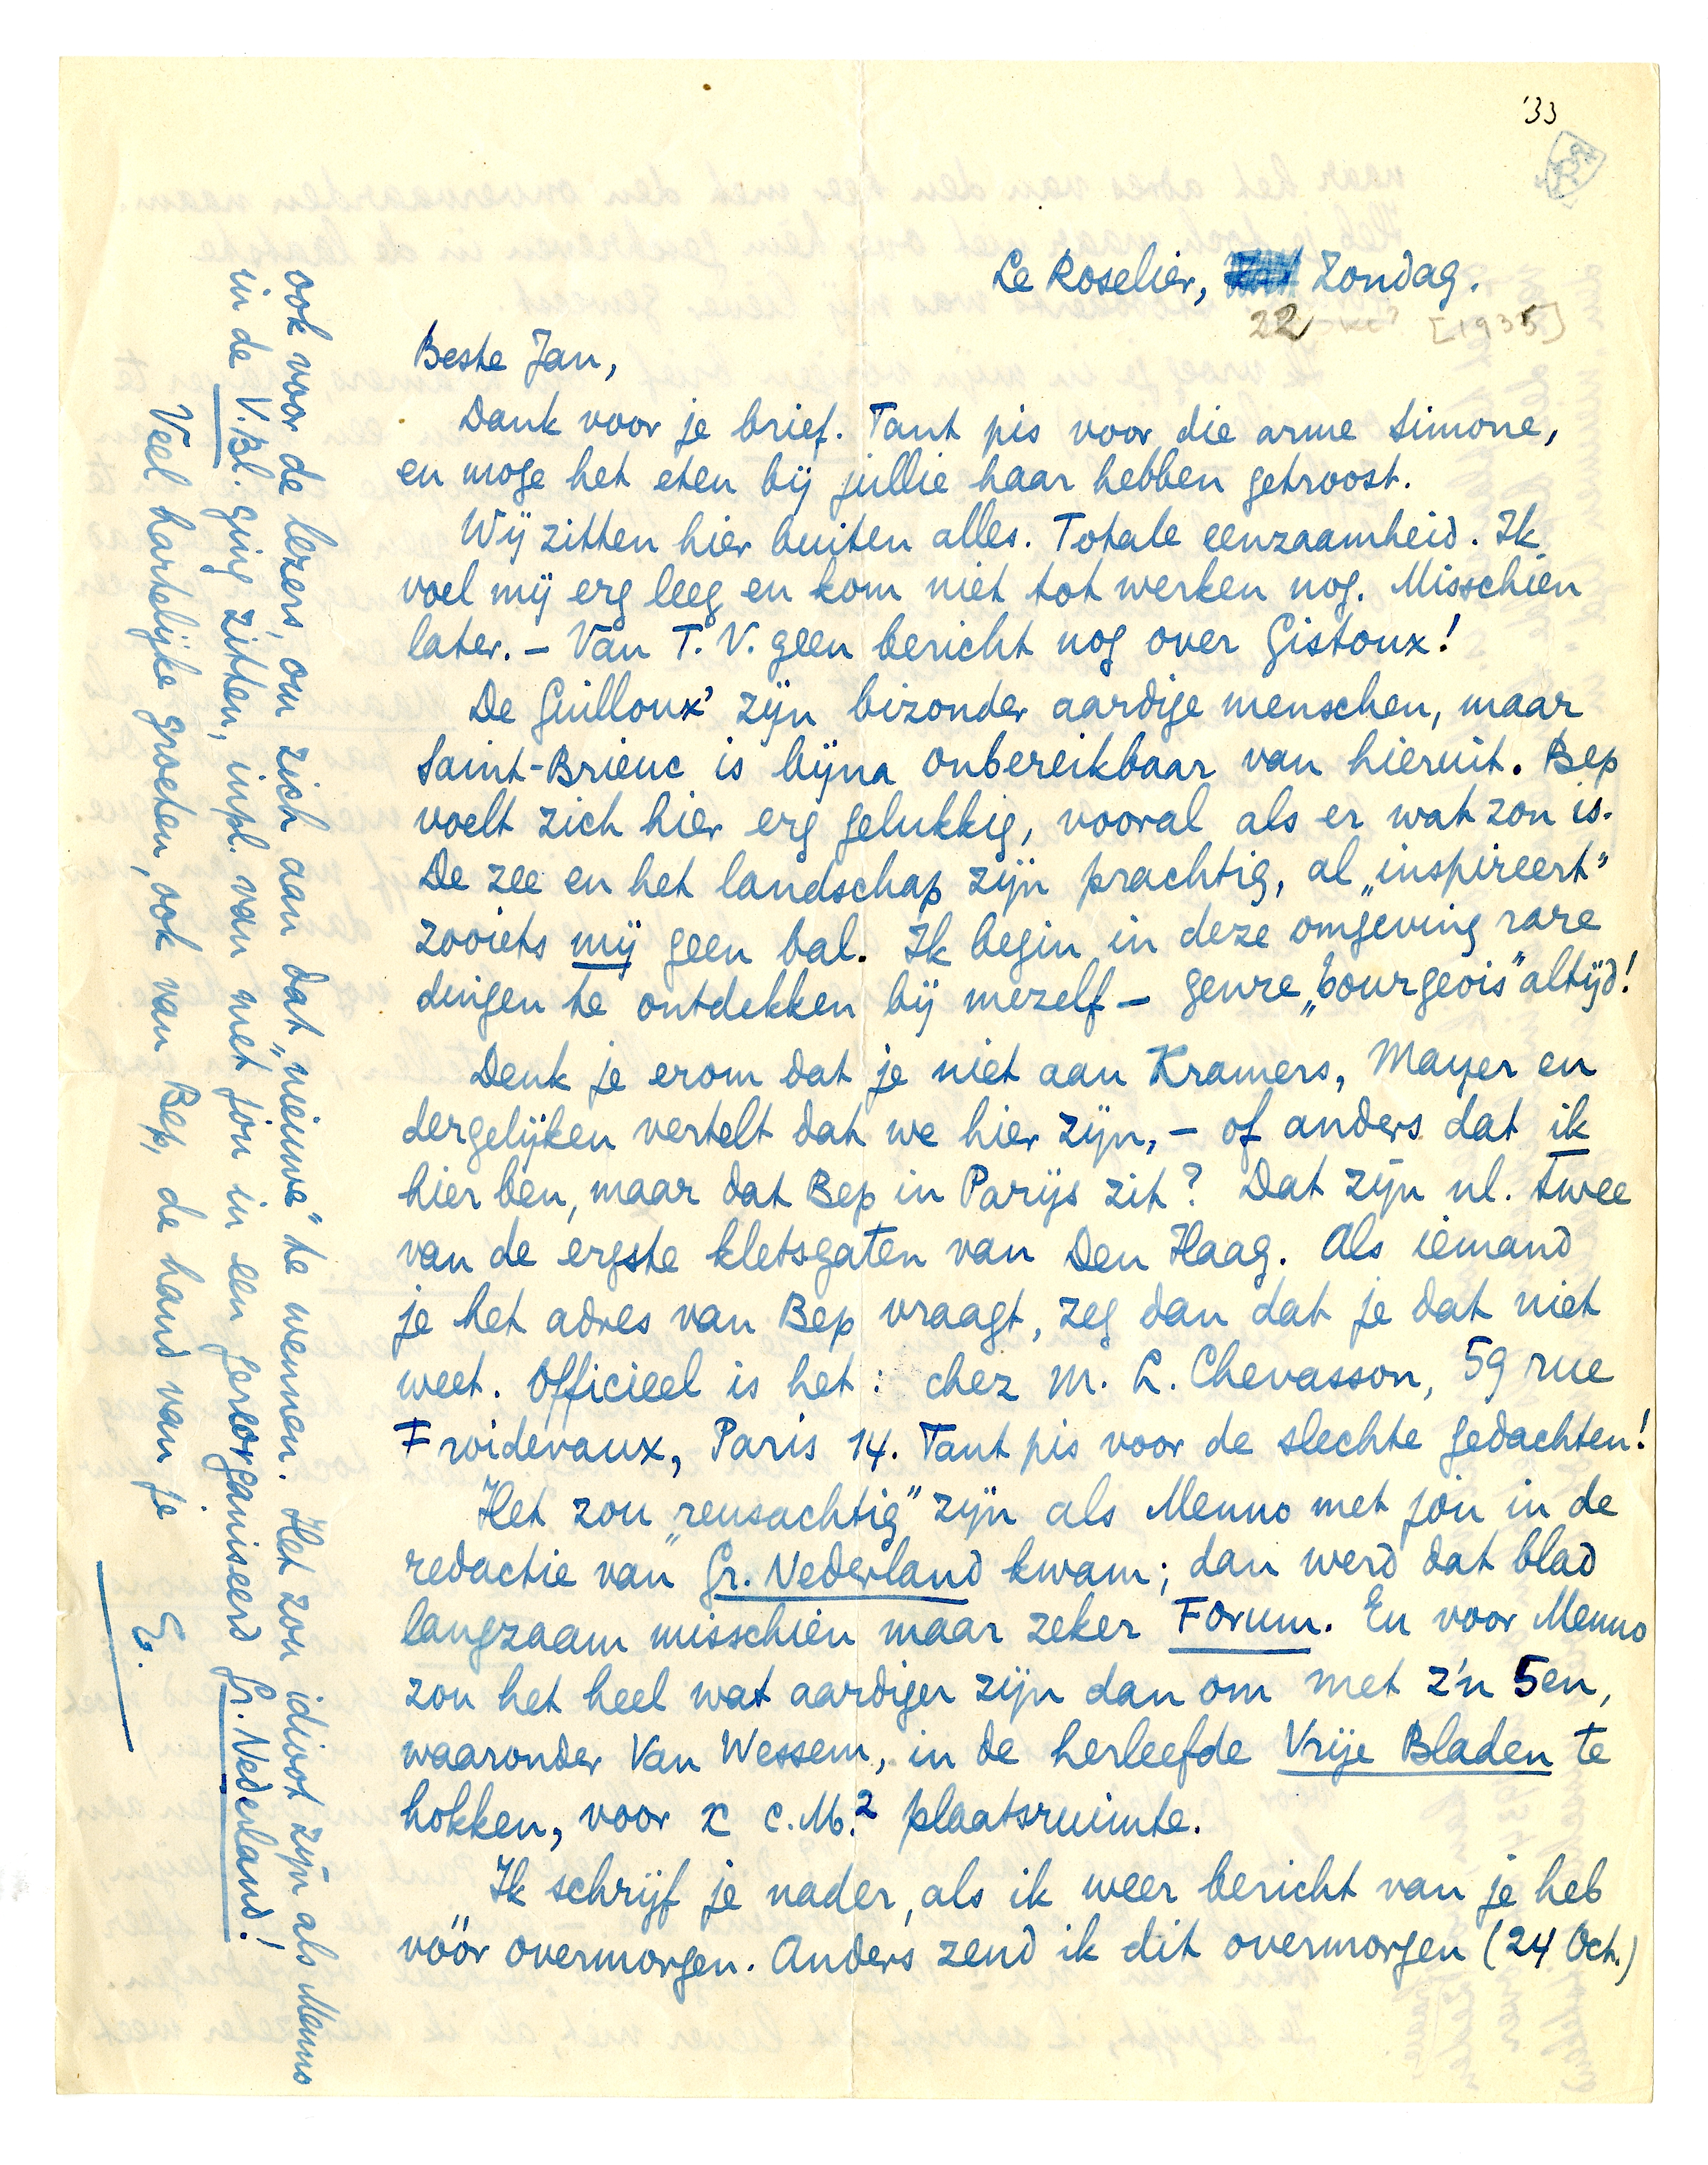 '33
Le Roselier, Zondag.
22 [1935]
Beste Jan,
Dank voor je brief. Tant pis voor die arme Simone,
en moge het eten bij jullie haar hebben getroost.
Wij zitten hier buiten alles. Totale eenzaamheid. Ik
voel mij erg leeg en kom niet tot werken nog. Misschien
later. – Van T.V. geen bericht nog over Gistoux!
De Guilloux' zijn bizonder aardige menschen, maar
Saint-Brieuc is bijna onbereikbaar van hieruit. Bep
voelt zich hier erg gelukkig, vooral als er wat zon is.
De zee en het landschap zijn prachtig, al „inspireert"
zooiets mij geen bal. Ik begin in deze omgeving rare
dingen te ontdekken bij mezelf – genre „bourgeois" altijd!
Denk je erom dat je niet aan Kramers, Mayer en
dergelijken vertelt dat we hier zijn, – of anders dat ik
hier ben, maar dat Bep in Parijs zit? Dat zijn nl. twee
van de ergste kletsgaten van Den Haag. Als iemand
je het adres van Bep vraagt, zeg dan dat je dat niet
weet. Officieel is het: chez M. L. Chevasson, 59 rue
Froidevaux, Paris 14. Tant pis voor de slechte gedachten!
Het zou „reusachtig" zijn als Menno met jou in de
redactie van Gr. Nederland kwam; dan werd dat blad
langzaam misschien maar zeker Forum. En voor Menno
zou het heel wat aardiger zijn dan om met z'n 5en,
waaronder Van Wessem, in de herleefde Vrije Bladen te
hokken, voor x c.M.² plaatsruimte.
Ik schrijf je nader, als ik weer bericht van je heb
vóór overmorgen. Anders zend ik dit overmorgen (24 Oct.)
ook voor de lezers, om zich aan dat „nieuwe" te wennen. Het zou idioot zijn als Menno
in de V.Bl. ging zitten, inpl. van met jou in een gereorganiseerd Gr. Nederland!
Veel hartelijke groeten, ook van Bep, de hand van je
E.